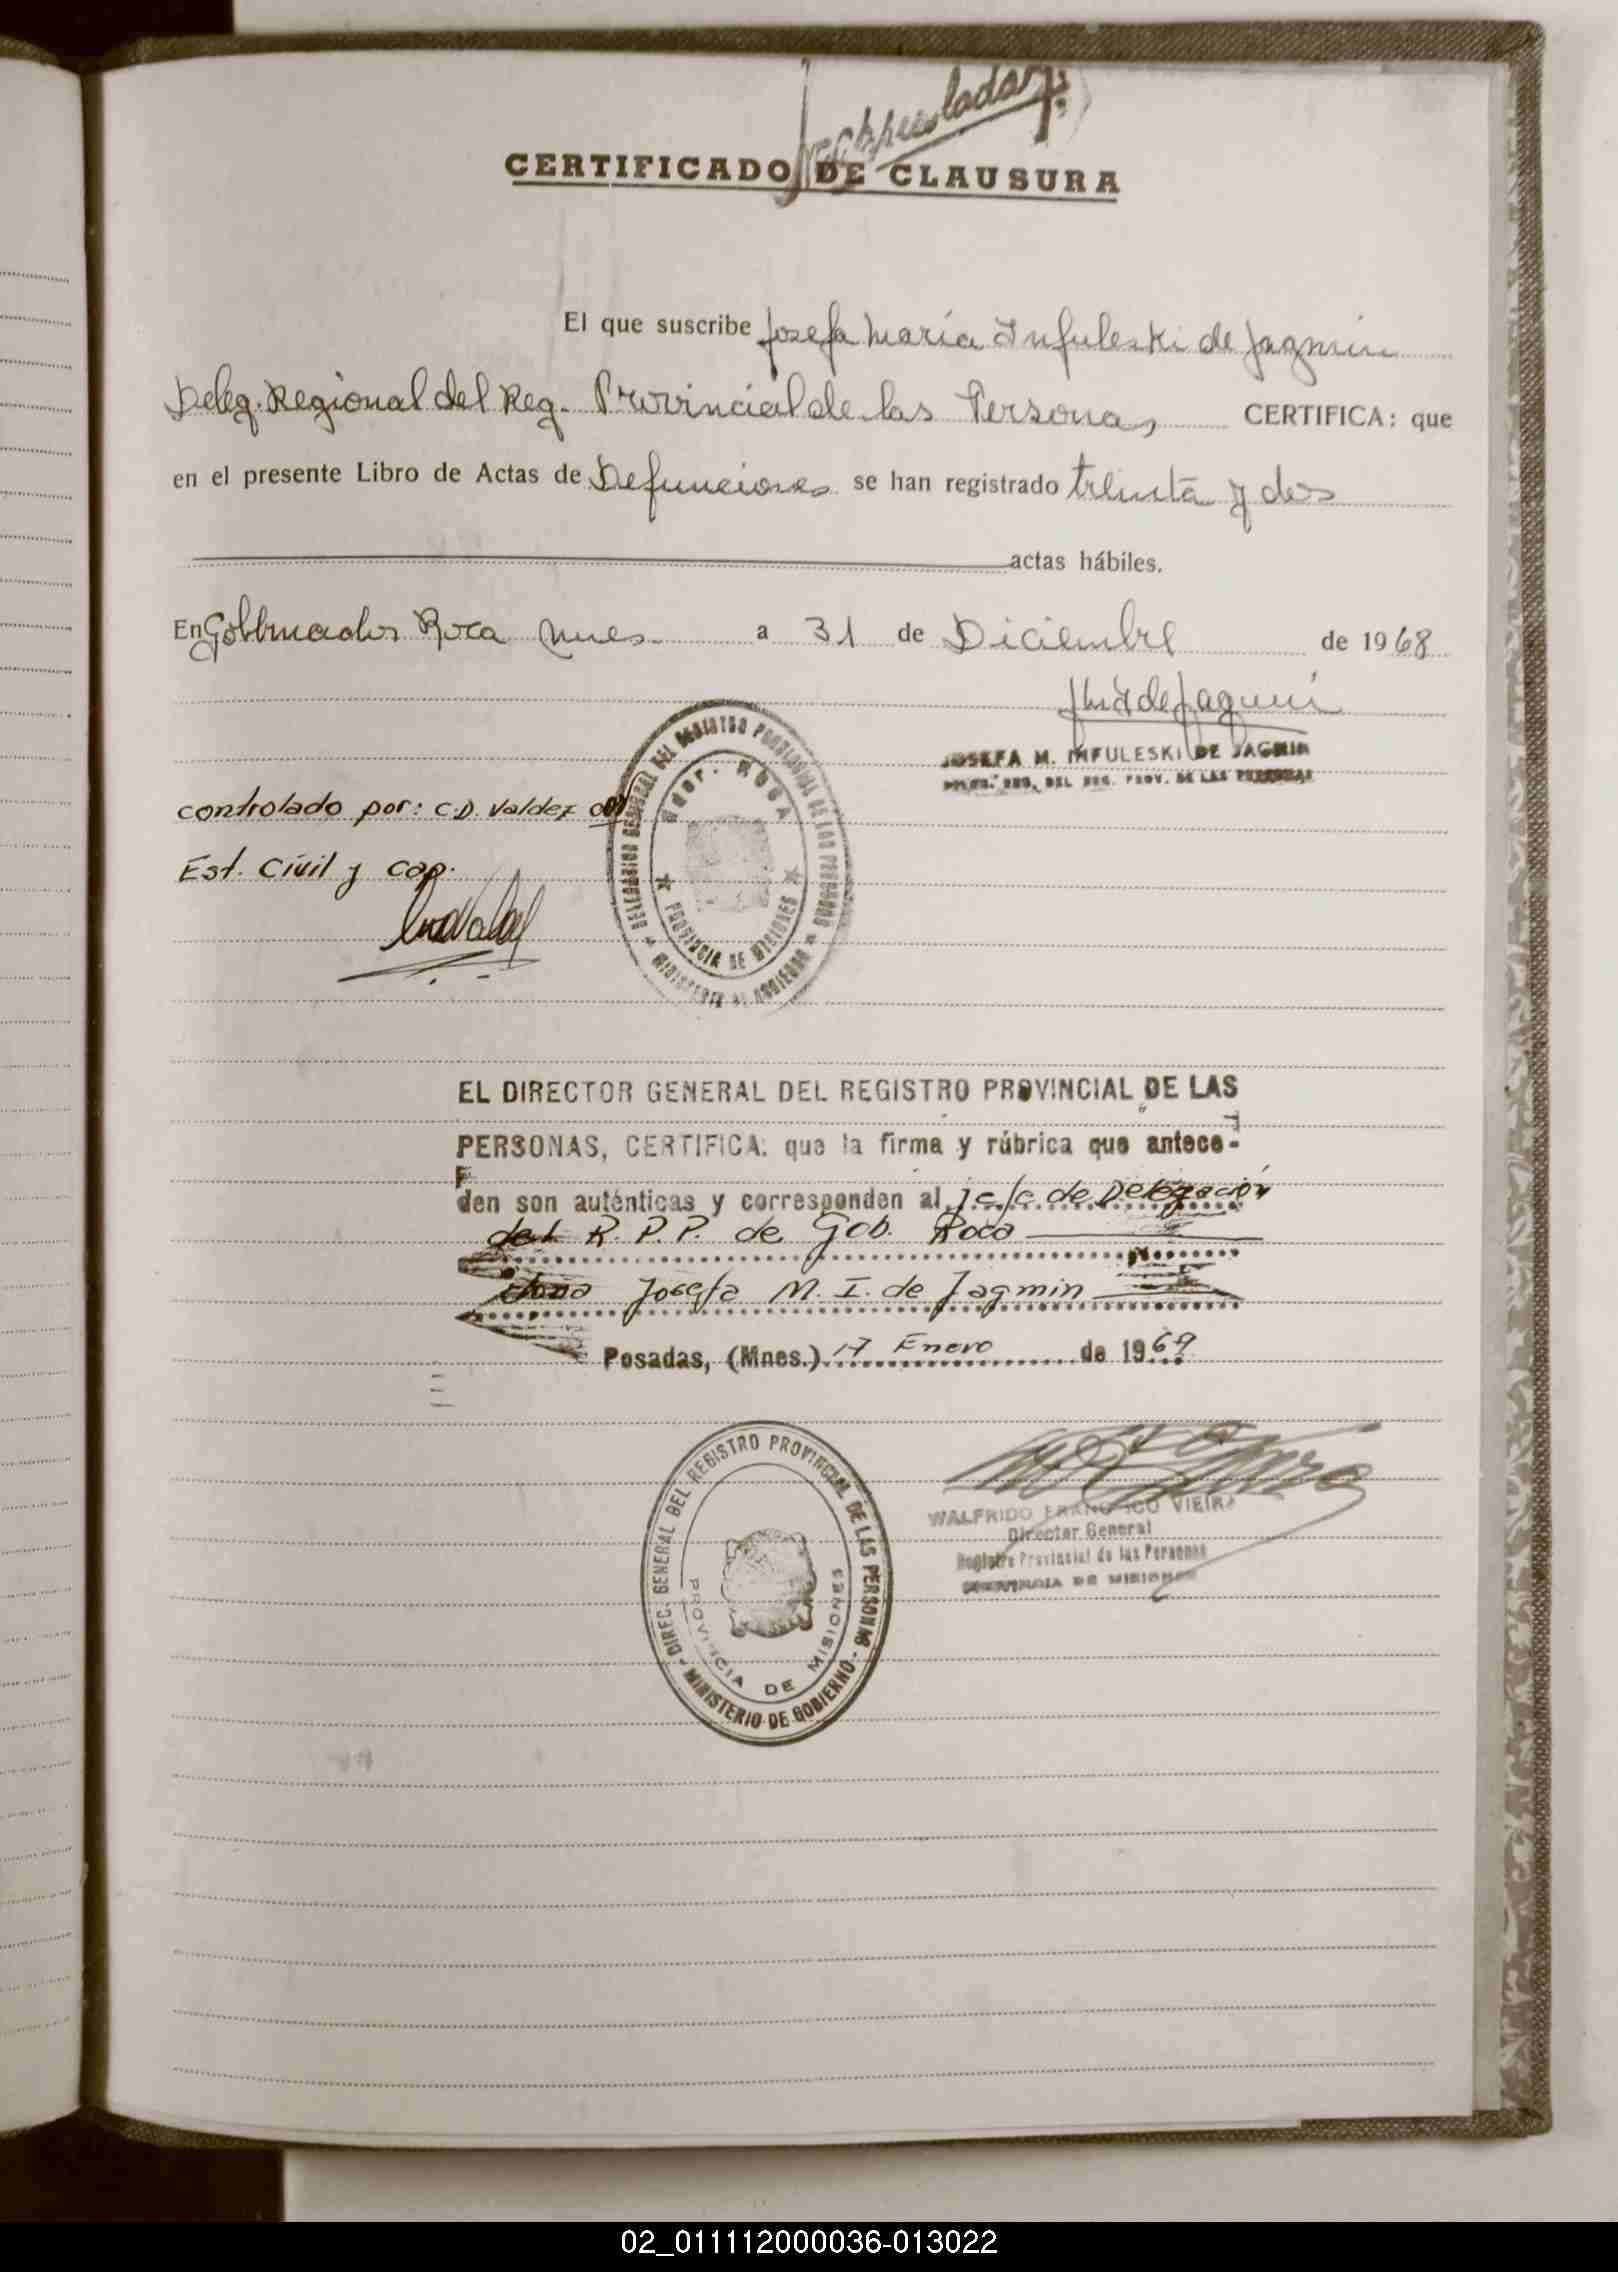 CERTIFICADO DE CLAUSURA
El que suscribe Josefa María Infuleski de Jagmin
Deleg. Regional del Reg. Provincial de las Personas CERTIFICA: que
en el presente Libro de Actas de Defunciones se han registrado treinta y dos
actas hábiles.
En Gobernador Roca Mnes. a 31 de Diciembre de 1968
JOSEFA M. INFULESKI DE JAGMIN
DELEG. REG. DEL REG. PROV. DE LAS PERSONAS
controlado por: C.D. Valdez
Est. Civil y Cap.
DELEGACION GENERAL DEL REGISTRO PROVINCIAL DE LAS PERSONAS
Gdor. ROCA
PROVINCIA DE MISIONES
MINISTERIO DE GOBIERNO
EL DIRECTOR GENERAL DEL REGISTRO PROVINCIAL DE LAS
PERSONAS, CERTIFICA: que la firma y rúbrica que antece-
den son auténticas y corresponden al jefe de Delegación
del R. P. P. de Gob. Roca
doña Josefa M. I. de Jagmin
Posadas, (Mnes.) 17 Enero de 1969
DIREC. GENERAL DEL REGISTRO PROVINCIAL DE LAS PERSONAS
PROVINCIA DE MISIONES
MINISTERIO DE GOBIERNO
WALFRIDO FRANCISCO VIEIRA
Director General
Registro Provincial de las Personas
PROVINCIA DE MISIONES
02_011112000036-013022